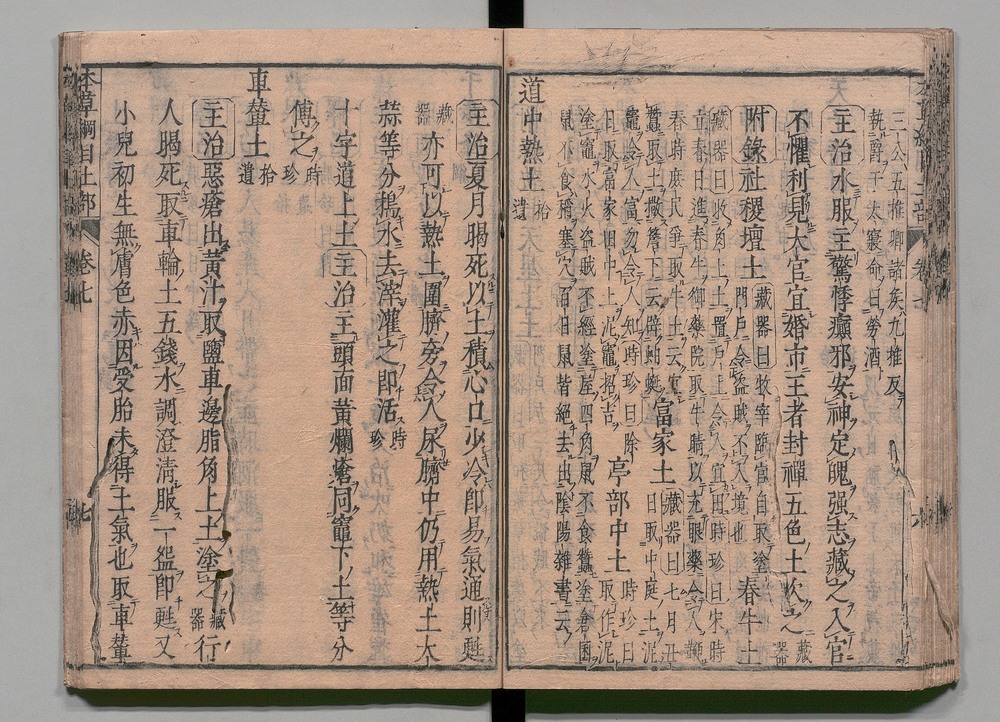 三公五推卿諸矦九推反
執爵于太寢命曰勞酒
主治水服主驚悸癲邪安神定魄强志藏之入官
不懼利見大官宜婚市王者封禪五色土次之藏器
附錄社稷壇土藏器曰牧宰臨官自取塗
門戶令盜賊不入境也春牛土
藏器曰收角上土置戶上令人宜田時珍曰宋時
立春日進春牛御藥院取牛睛以充眼藥今人鞭
春時庶民爭取牛土云宜
蠶取土撒簷下云辟蚰蜒富家土藏器曰七月丑
日取中庭土泥
竈令人富勿令人知時珍曰除
日取富家田中土泥竈招吉亭部中土時珍曰
取作泥
塗竈水火盜賊不經塗屋四角鼠不食蠶塗倉囷
鼠不食稻塞穴百日鼠皆絕去出陰陽雜書云
道中熱土拾遺
主治夏月暍死以土積心口少冷卽易氣通則甦
藏器亦可以熱土圍臍旁令人尿臍中仍用熱土大
蒜等分搗水去滓灌之卽活時珍
十字道上土主治主頭面黃爛瘡同竈下土等分
傅之時珍
車輦土拾遺
主治惡瘡出黃汁取鹽車邊脂角上土塗之藏器行
人暍死取車輪土五錢水調澄清服一盌卽甦又
小兒初生無膚色赤因受胎未得土氣也取車輦
本草綱目土部 卷七 七